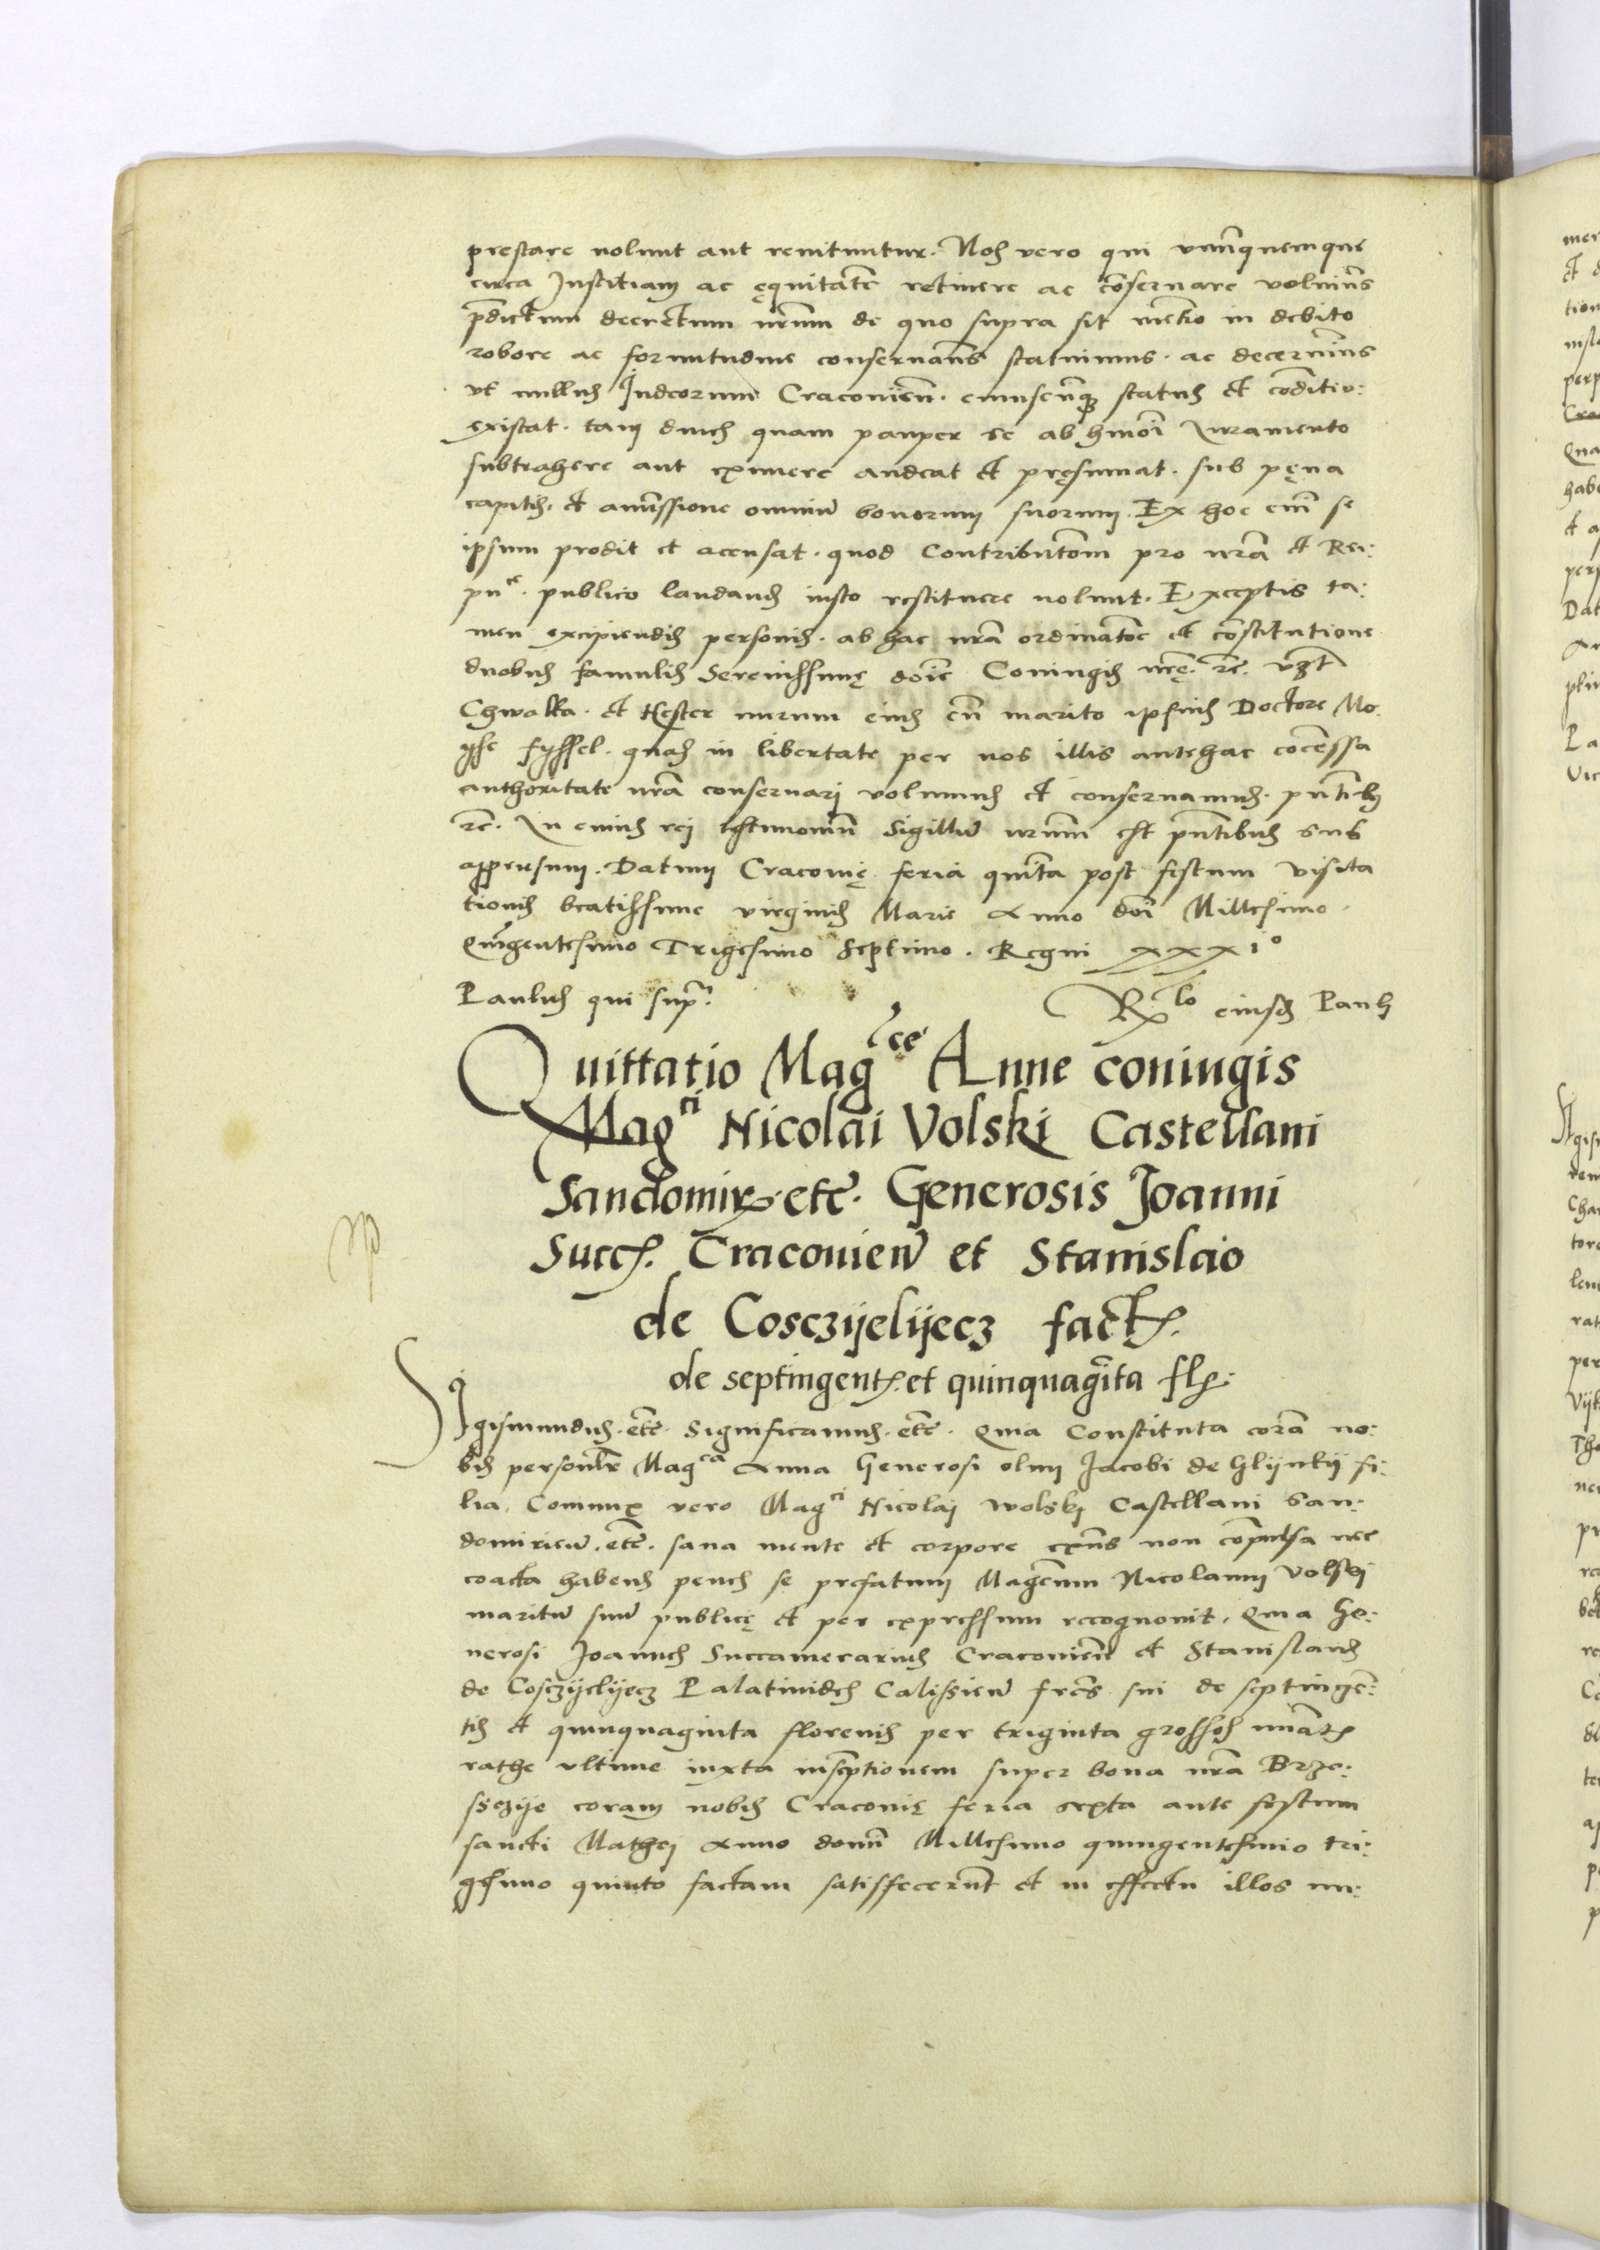 prestare nolunt aut renituntur. Nos vero qui vnũquemque
circa Justitiam ac ęquitatẽ retinere ac cõseruare volum̃s
p̃dictum decretum nr̃um de quo supra fit mẽtio in debito
robore ac fortitudine conseruan̄s statuimus. ac decernim̃s
vt nullus Judeorum Cracovieñ. cuiuscũq3 status et cõditio:
existat. tam diues quam pauper se ab hmõi Juramento
subtrahere aut eximere audeat et pręsumat. sub pęna
capitis. et amissione omniũ bonorum suorum. Ex hoc em̃ se
ipsum prodit et accusat. quod Contributõm pro nr̃a et Rei:
pu^ce. publico laudandis iusto restituere nolunt. Exceptis ta:
men excipiendis personis. ab hac nr̃a ordinatõe et constitutione
duobus famulis Serenissimę dñe Coniugis nr̃ę. rc̃. vzt̃
Chwalka. et Hester nurum eius cũ marito ipsius Doctore Mo:
yse Fyssel. quas in libertate per nos illis antehac cõcessa
authoritate nr̃a conseruari volumus et conseruamus. pñtib3
rc̃. In cuius rei testimoniũ Sigillũ nr̃um est pñtibus sub
appensum. Datum Cracovię feria quĩta post festum visita
tionis beatissime virginis Marie Anno dñi Millesimo
Quĩgentesimo Trigesimo Septimo. Regni xxxi°
Paulus qui supr̃.
R^lo eiusd3 Pauli
Quittatio Mag^ce Anne coniugis
Mag^ci Nicolai Volski Castellani
Sandomir. etc̃. Generosis Joanni
Succ. Cracovieñ et Stanislao
de Cosczyelyecz fact.
de septingent. et quinquagĩta fl.
Sigismundus. etc̃. Significamus. etc̃. Quia Constituta corã no:
bis personlr̃ Mag^ca Anna Generosi olim Jacobi de Glynky fi:
lia, Coniunx vero Mag^ci Nicolai Wolski Castellani San:
domirieñ. etc̃. sana mente et corpore exñs non cõpulsa nec
coacta habens penes se prefatum Magcũm Nicolaum Volski
maritũ suũ publicę et per expressum recognovit. Quia Ge:
nerosi Joannes Succamerarius Cracovieñ et Stanislaus
de Cosczyelyecz Palatinides Calissieñ frẽs sui de septingẽ:
tis et quinquaginta florenis per triginta grossos
rathe ultime iuxta inscr̃ptionem super bona nr̃a Brze:
sszye coram nobis Cracovię feria sexta ante festum
sancti Mathei Anno domĩ Millesimo quingentesimo tri:
gesimo quinto factam satisfecerũt et in effectu illos nu: